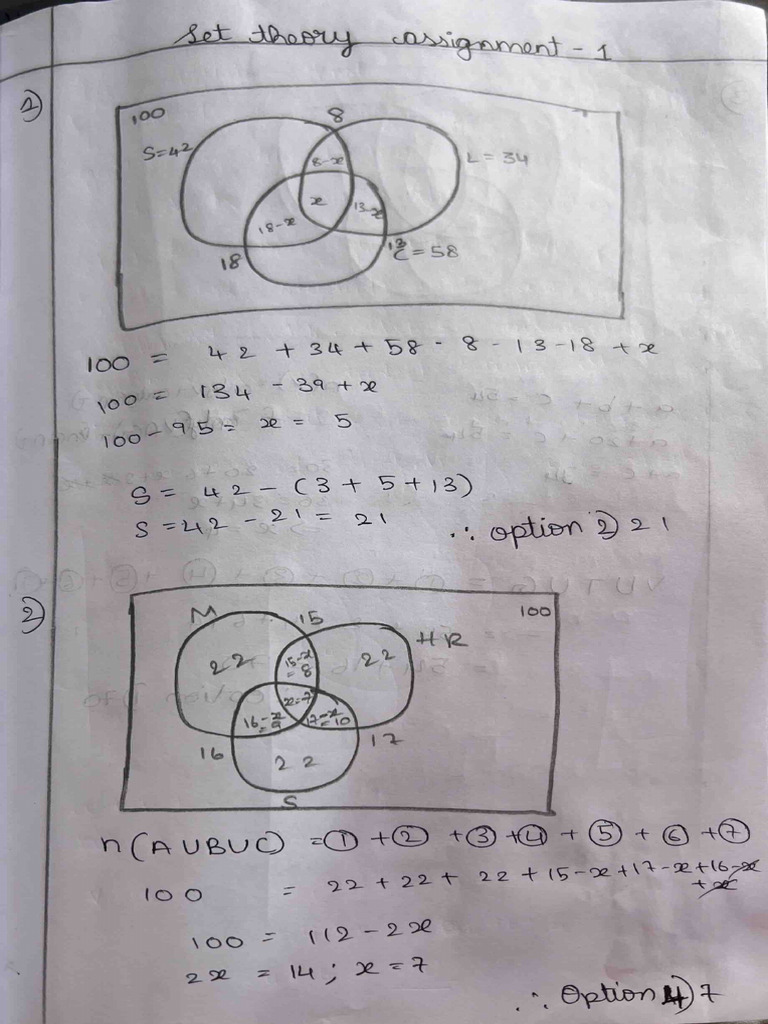 Set theory assignment - 1
1)
100
8
S=42
8-x
L = 34
x
13-x
18-x
18
13
C = 58
100 = 42 + 34 + 58 - 8 - 13 - 18 + x
100 = 134 - 39 + x
100 - 95 = x = 5
S = 42 - (3 + 5 + 13)
S = 42 - 21 = 21 ∴ option 2) 21
2)
M 15 100
HR
22
15-x
= 8
22
x=7
16-x
= 9
17-x
= 10
16 17
22
S
n(AUBUC) = ① + ② + ③ + ④ + ⑤ + ⑥ + ⑦
100 = 22 + 22 + 22 + 15 - x + 17 - x + 16 - x
+ x
100 = 112 - 2x
2x = 14 ; x = 7
∴ Option 4) 7